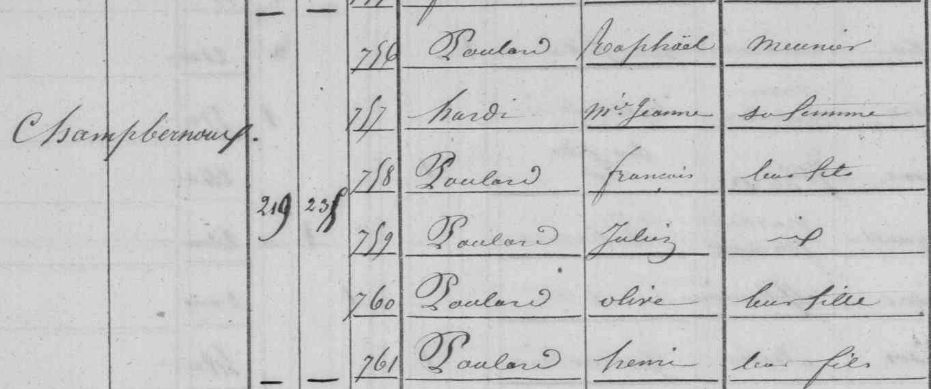 756 Poulard Raphaël meunier
757 hardi Mie Jeanne sa femme
Champbernoux.
758 Poulard françois leur fils
219 235
759 Poulard Julien id
760 Poulard olive leur fille
761 Poulard henri leur fils